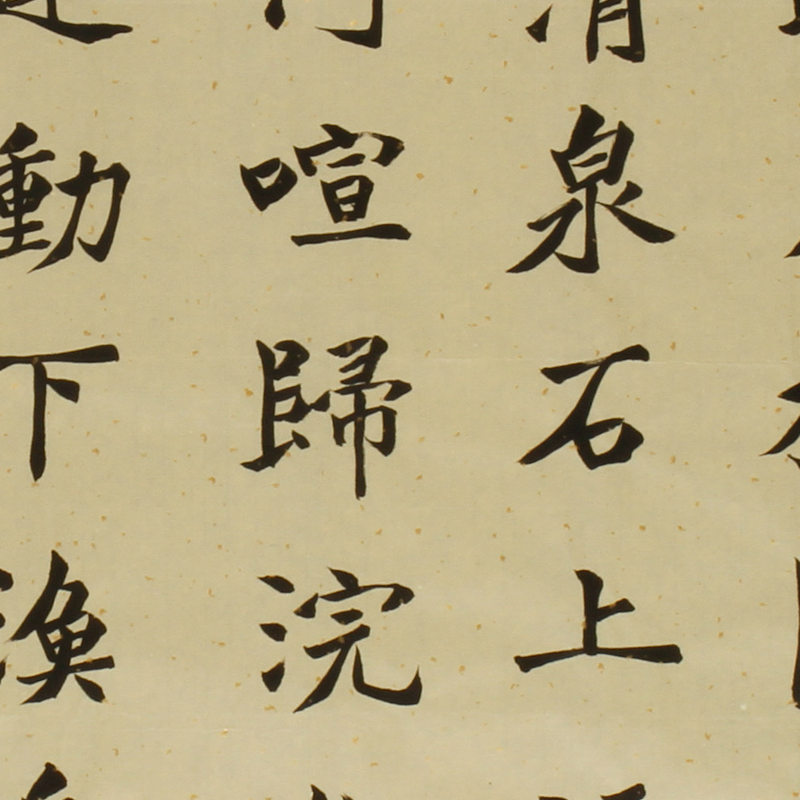 清泉石上
喧歸浣
動下漁